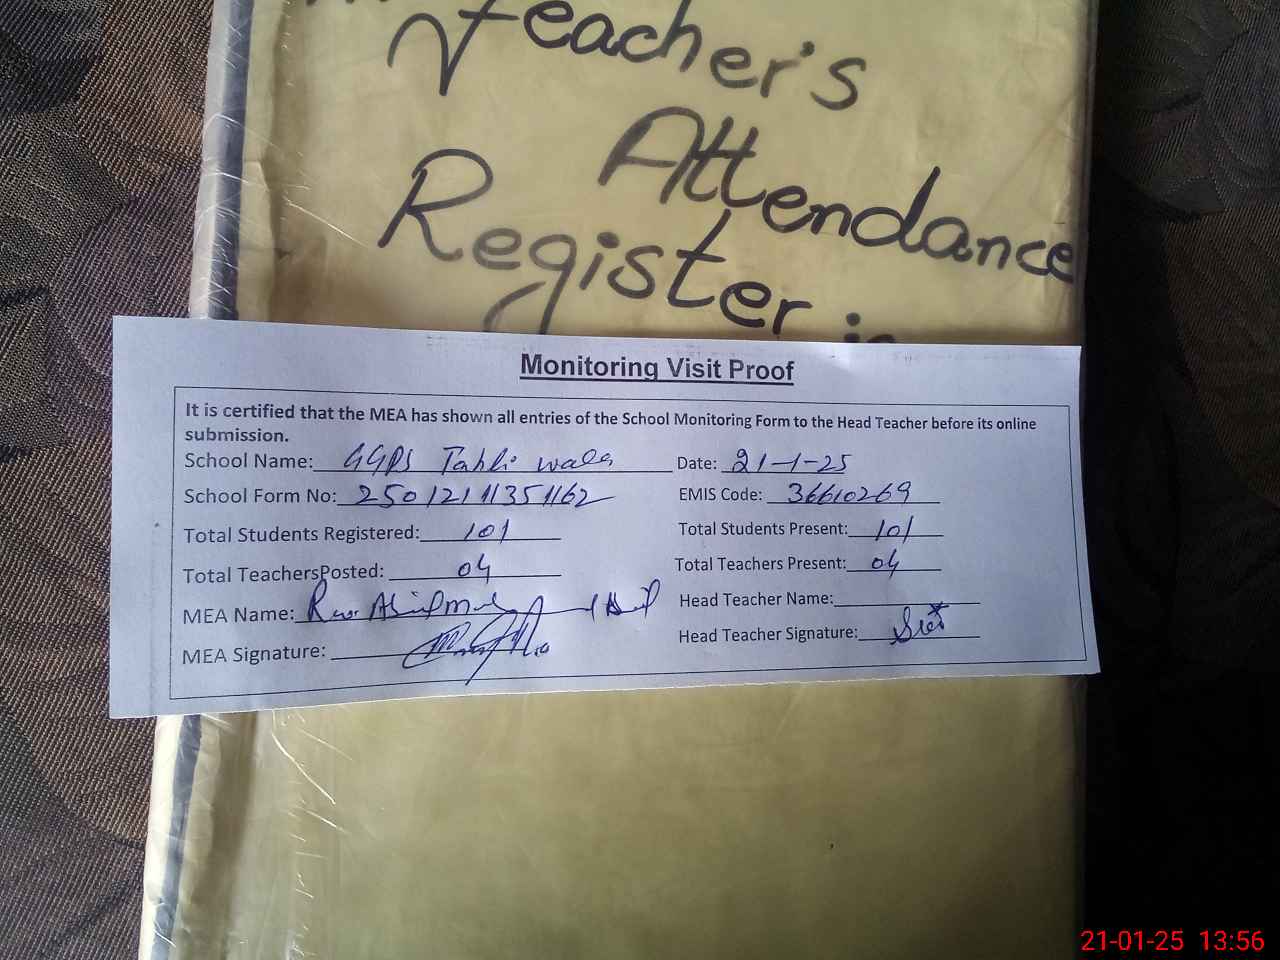 Teacher's
Attendance
Register
Monitoring Visit Proof
It is certified that the MEA has shown all entries of the School Monitoring Form to the Head Teacher before its online
submission.
School Name: GGPS Tahli wala Date: 21-1-25
School Form No: 2501211351162 EMIS Code: 36610269
Total Students Registered: 101 Total Students Present: 101
Total TeachersPosted: 04 Total Teachers Present: 04
MEA Name: Head Teacher Name:
MEA Signature: Head Teacher Signature:
21-01-25 13:56